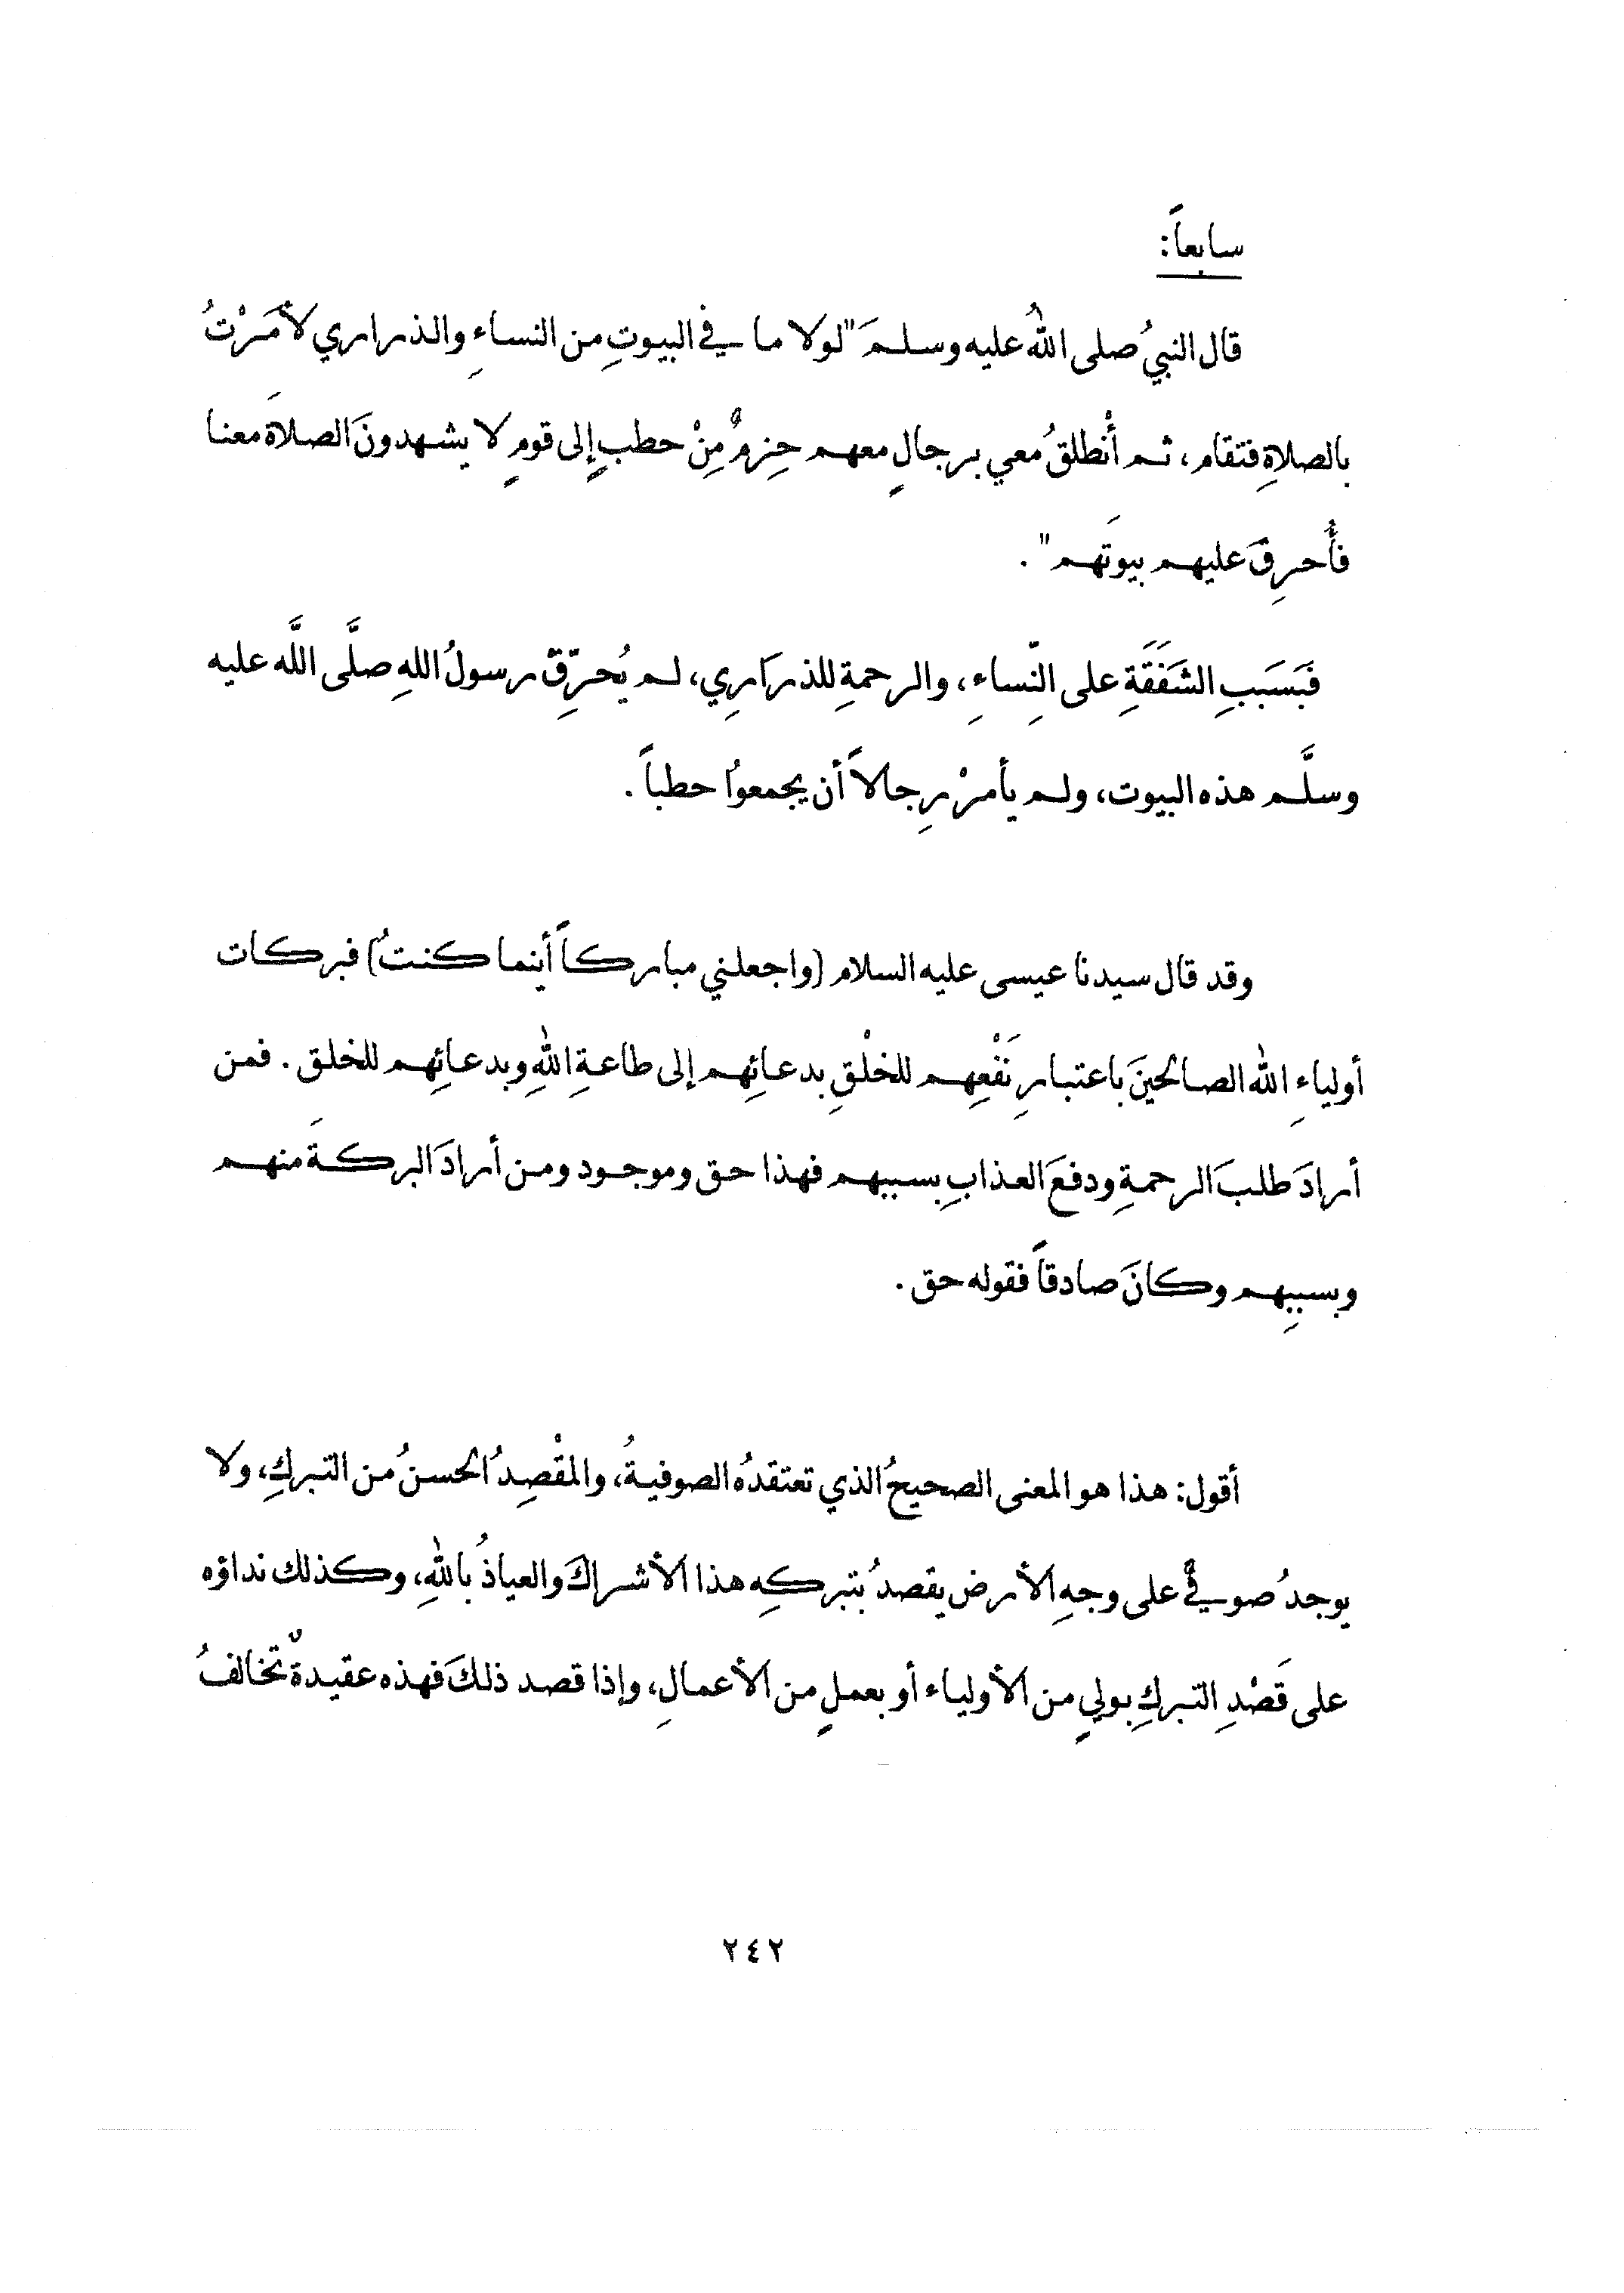 سابعاً:
قال النبيُ صلى اللهُ عليه وسلمَ "لولا ما في البيوتِ من النساءِ والذراري لأمَرْتُ
بالصلاةِ فتقام، ثم أنْطلقُ معي برجالٍ معهم حِزمٌ مِنْ حطبٍ إلى قومٍ لا يشهدونَ الصلاةَ معنا
فأُحرِقَ عليهم بيوتَهم".
فَبَسَببِ الشَفَقَةِ على النِّساءِ، والرحمةِ للذرَارِي، لم يُحرِّقْ رسولُ اللهِ صلَّى اللَّه عليه
وسلَّم هذه البيوت، ولم يأمرْ رِجالاً أن يجمعوُا حطباً.
وقد قال سيدنا عيسى عليه السلام (واجعلني مباركاً أينما كنتُ) فبركات
أولياءِ الله الصالحينَ باعتبارِ نَفْعِهم للخلْقِ بدعائِهم إلى طاعةِ اللهِ وبدعائِهم للخلق. فمن
أرادَ طلبَ الرحمةِ ودفعَ العذابِ بسببهم فهذا حق وموجود ومن أرادَ البركةَ منهم
وبسببِهم وكانَ صادقاً فقوله حق.
أقول: هذا هو المعنى الصحيحُ الذي تعتقدُه الصوفيةُ، والمقْصِدُ الحسنُ من التبركِ، ولا
يوجدُ صوفيٌ على وجهِ الأرض يقصدُ بتبركِه هذا الأشراكَ والعياذُ باللهِ، وكذلك نداؤه
على قَصْدِ التبركِ بوليٍ من الأولياء أو بعملٍ من الأعمالِ، وإذا قصد ذلكَ فهذه عقيدةٌ تخالفُ
٢٤٢